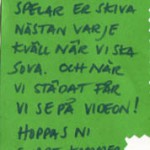 SPELAR ER SKIVA
NÄSTAN VARJE
KVÄLL NÄR VI SKA
SOVA. OCH NÄR
VI STÄDAT FÅR
VI SE PÅ VIDEON!
HOPPAS NI